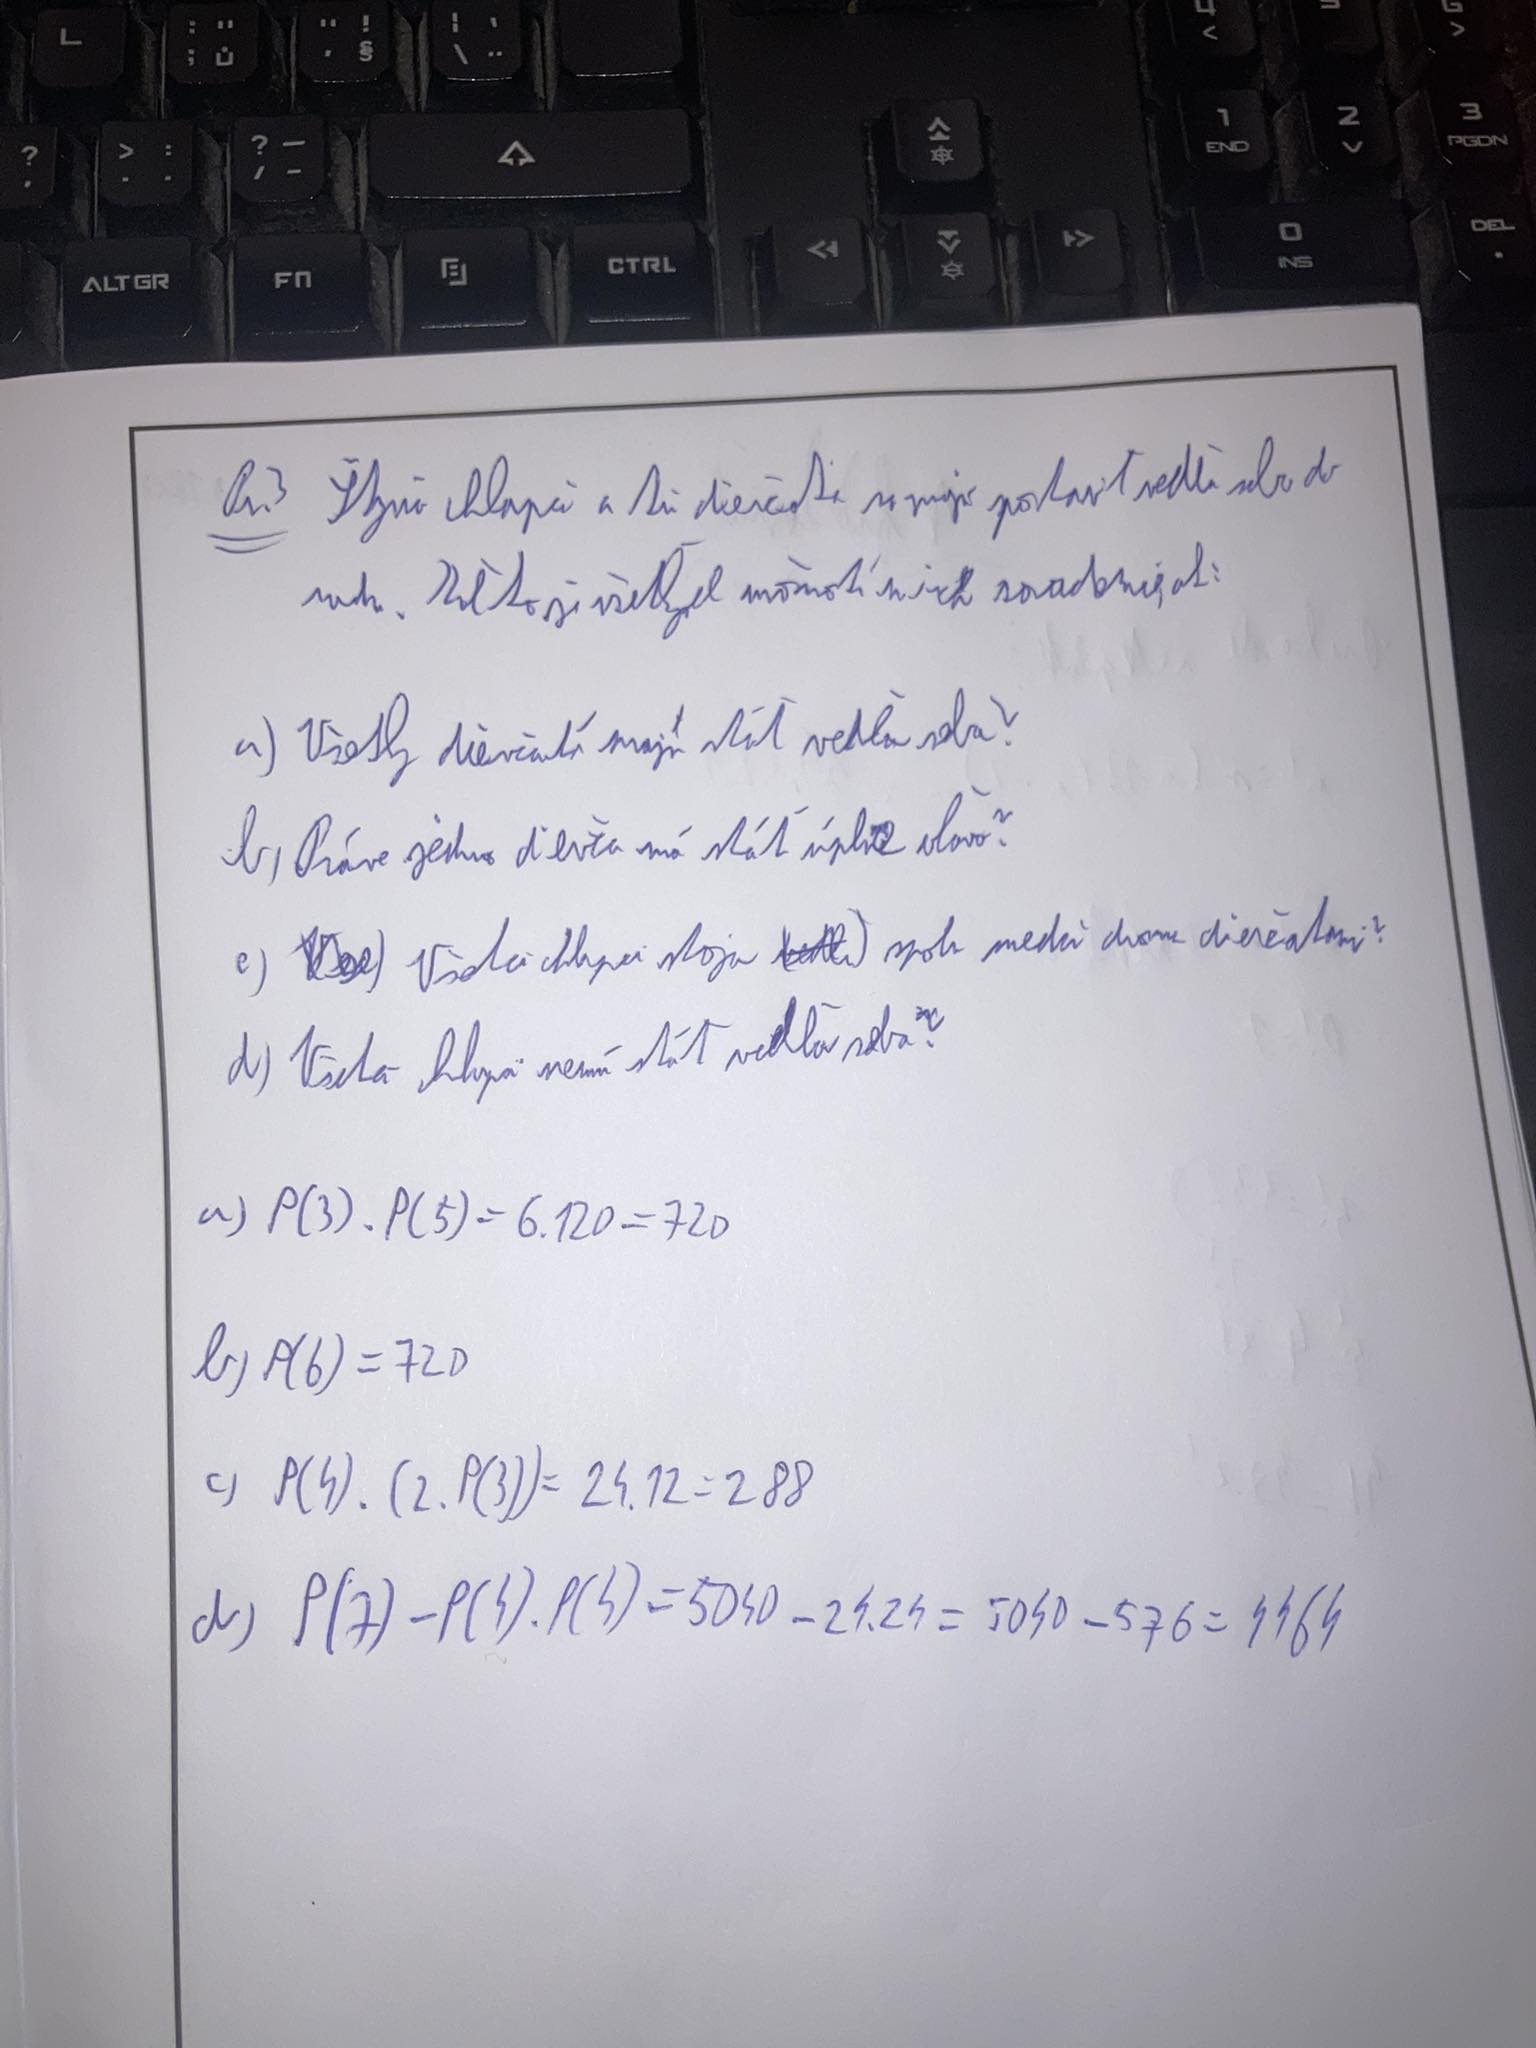 L : " ; ů " ! ' § | ' \ ¨
? , > : . . ? — / -
ALT GR FN CTRL
4 < 5 6 >
1 END 2 3 PGDN
0 INS DEL .
Pr.3 Štyria chlapci a tri dievčatá sa majú postaviť vedľa seba do
radu. Koľko je všetkých možností ich zoradenia, ak:
a) Všetky dievčatá majú stáť vedľa seba?
b) Práve jedno dievča má stáť úplne vľavo?
c) Všetci chlapci stoja spolu medzi dvoma dievčatami?
d) Všetci chlapci nemajú stáť vedľa seba?
a) P(3) . P(5) = 6.120 = 720
b) P(6) = 720
c) P(4) . (2 . P(3)) = 24.12 = 288
d) P(7) - P(4) . P(4) = 5040 - 24.24 = 5040 - 576 = 4464